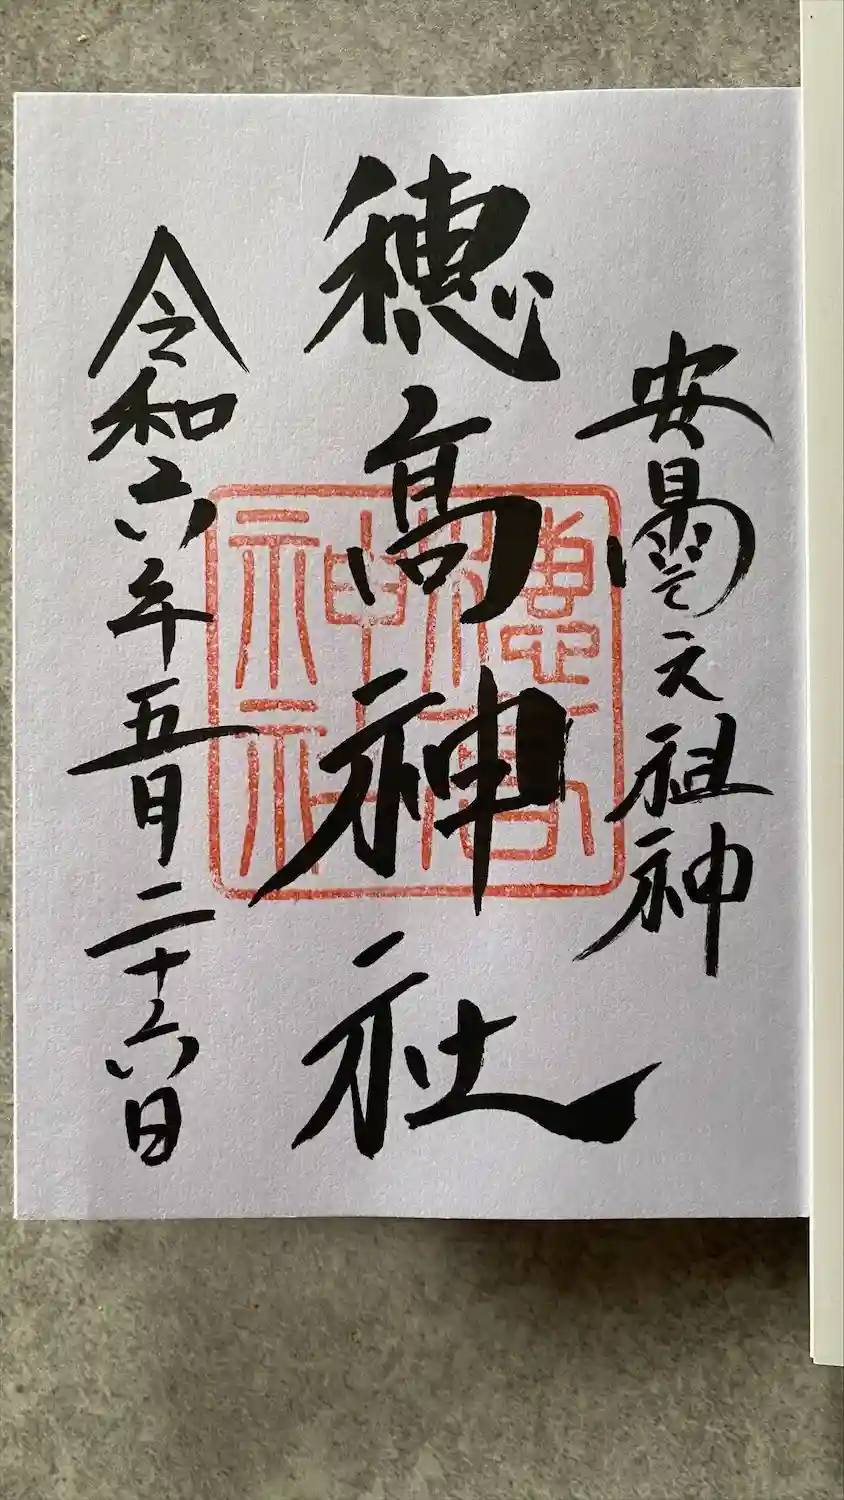 安曇之祖神
穂髙神社
令和六年五月二十六日
穂高
神社